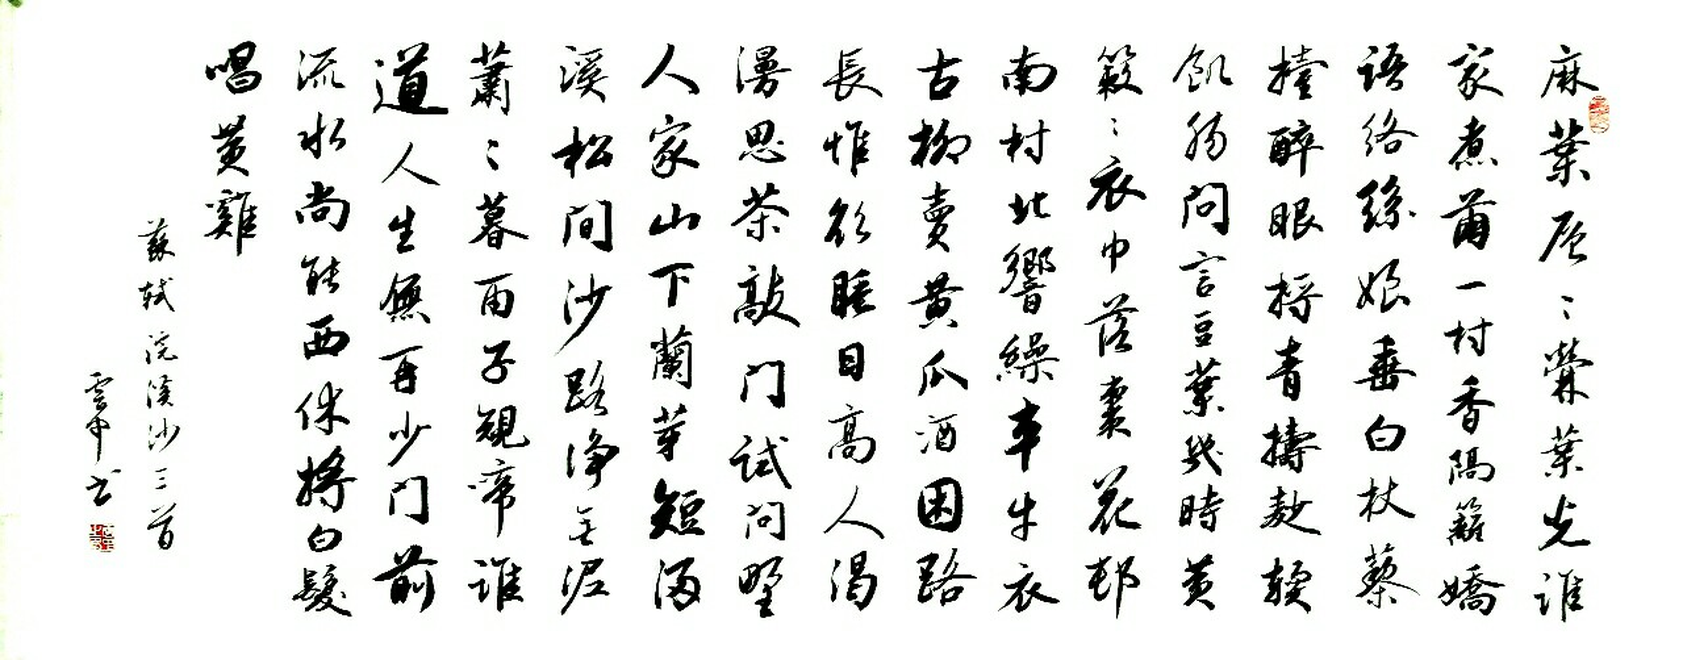 麻葉层〻檾葉光誰
家煮繭一村香隔籬嬌
語络絲娘垂白杖藜
擡醉眼捋青擣麨輭
飢肠問言豆葉幾時黄
簌〻衣巾落棗花邨
南村北響繰車牛衣
古柳賣黄瓜酒困路
長惟欲睡日高人渴
漫思茶敲门試问野
人家山下蘭芽短浸
溪松间沙路净無泥
蕭〻暮雨子規啼誰
道人生無再少门前
流水尚能西休將白髮
唱黄雞
蘇轼浣溪沙三首
雲中书